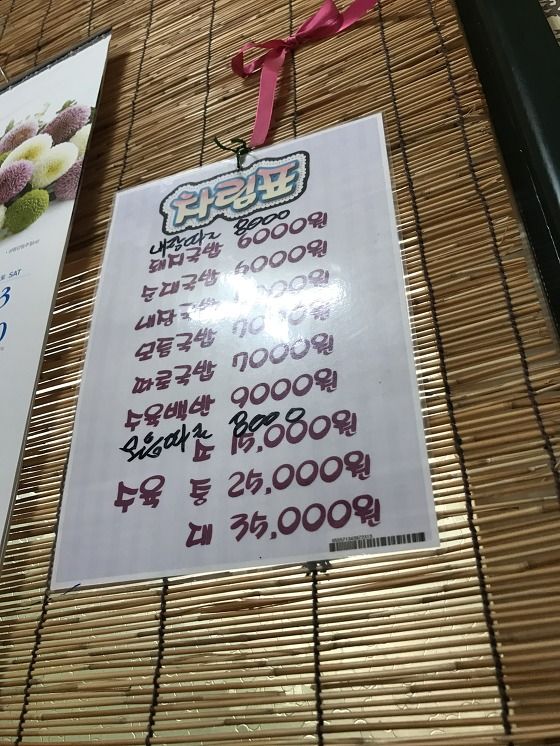 차림표
내장따로 8000
돼지국밥 6000원
순대국밥 6000원
내장국밥 6000원
모듬국밥 7000원
따로국밥 7000원
수육백반 9000원
모듬따로 8000
소 15,000원
수육 중 25,000원
대 35,000원
SAT
3
0